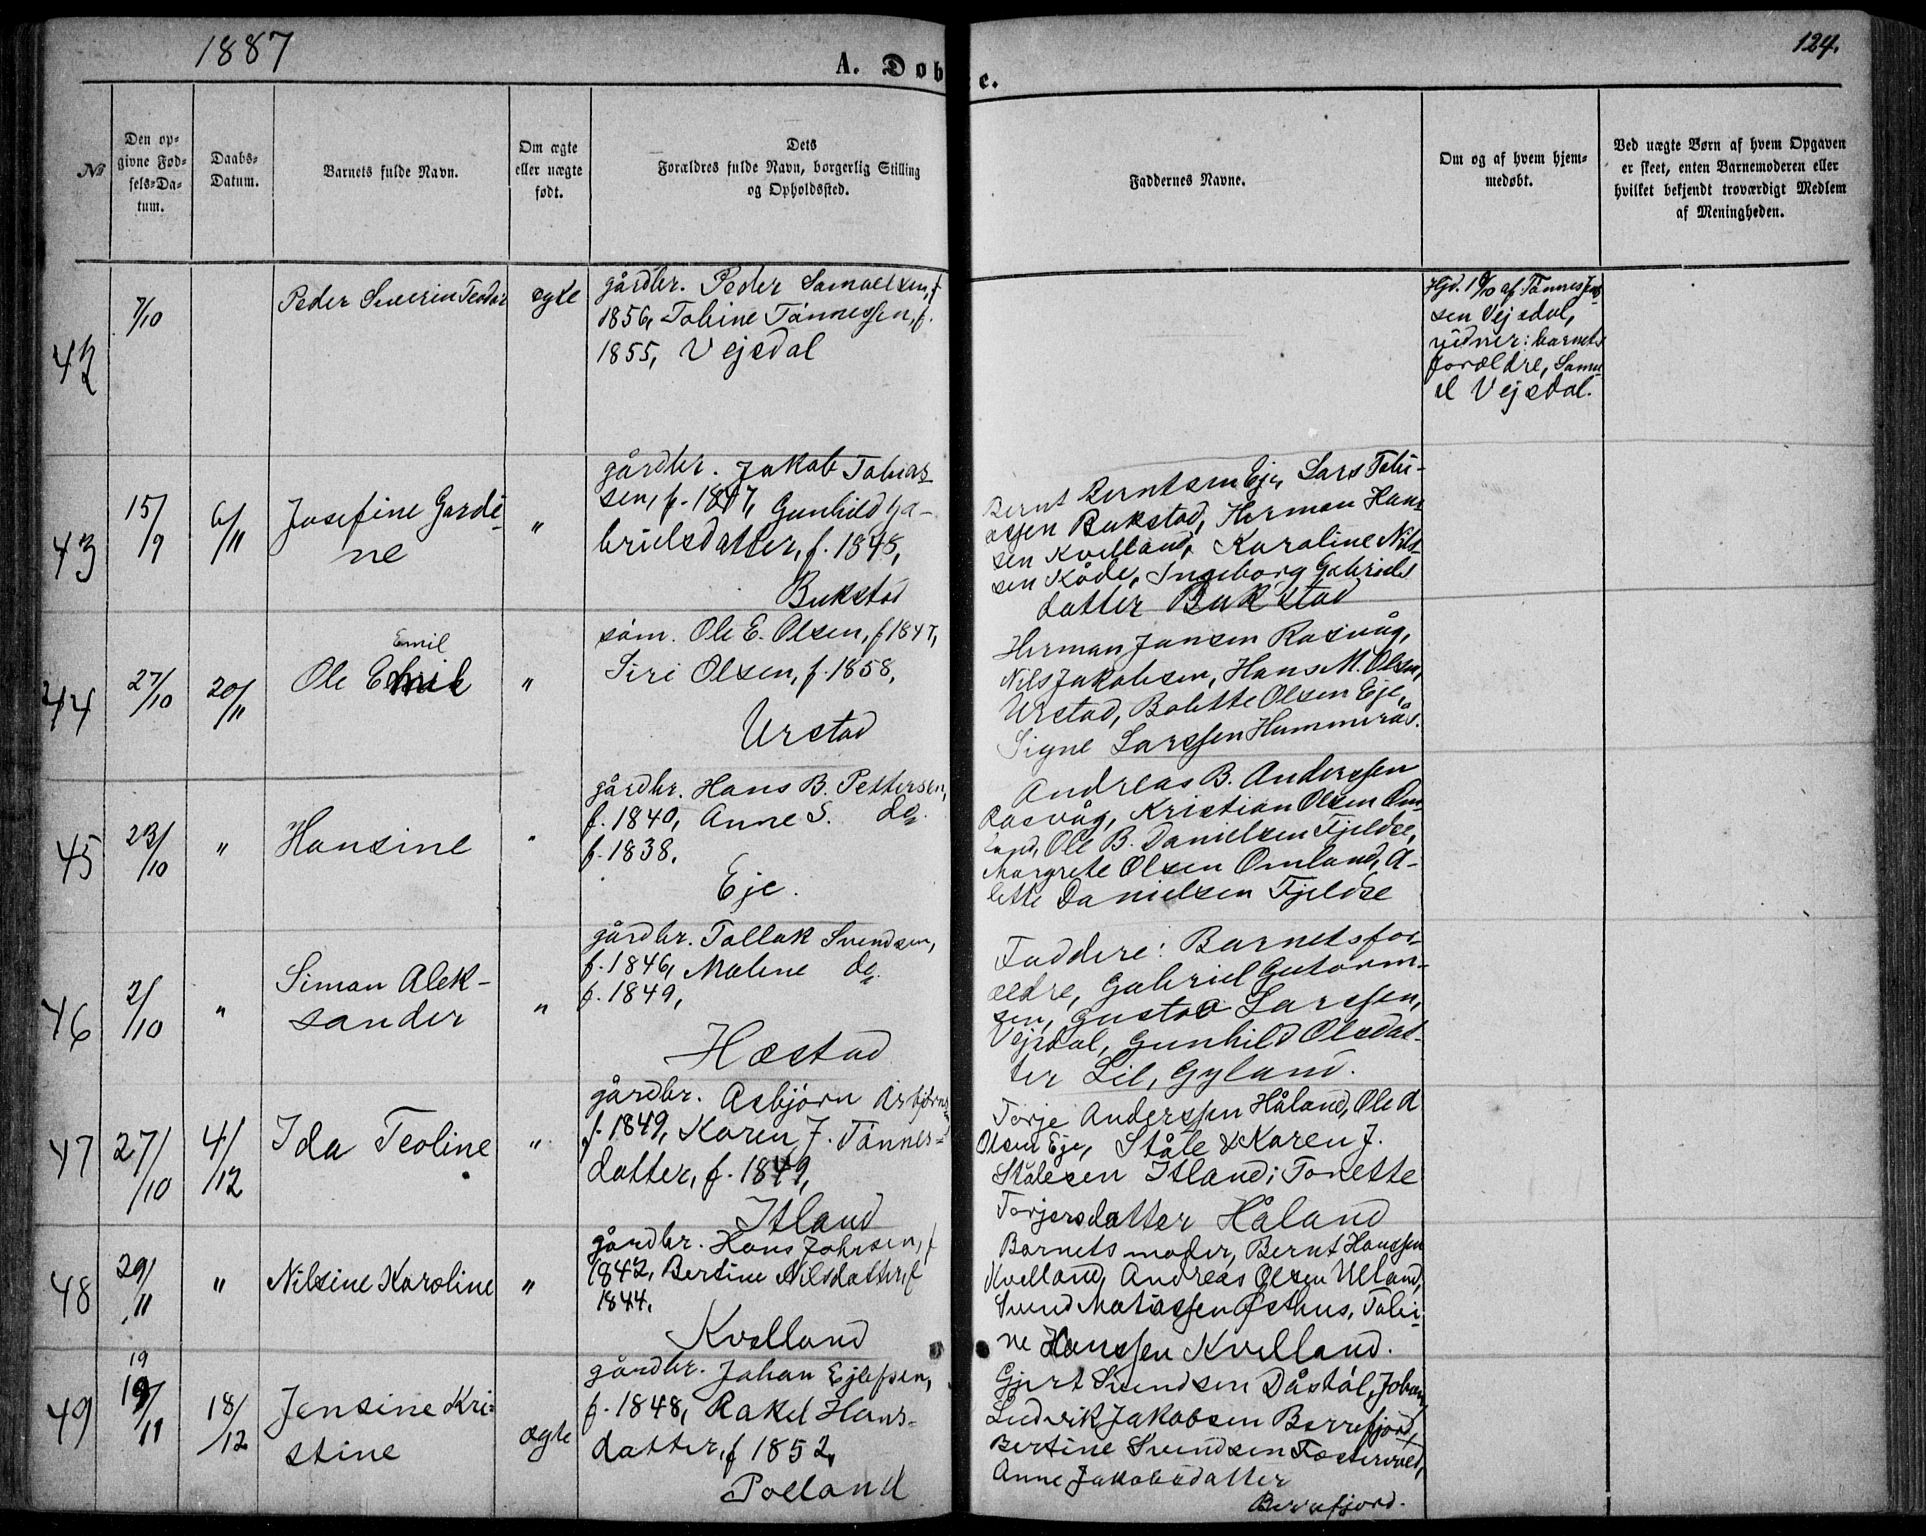 1887
A. Döbte.
124.
№
Den opgivne Fødsels-Datum.
Daabs-Datum.
Barnets fulde Navn.
Om ægte eller uægte født.
Dets Forældres fulde Navn, borgerlig Stilling og Opholdssted.
Faddernes Navne.
Om og af hvem hjemmedøbt.
Ved uægte Børn af hvem Opgaven er skeet, enten Barnemoderen eller hvilket bekjendt troværdigt Medlem af Menigheden.
42
7/10
Peder Severin Teodor
ægte
gårdbr. Peder Samuelsen, f.
1856, Tobine Tönnessen, f.
1855, Vejsdal
af Tönnes
sen Vejsdal,
vidner: barnets
forældre, Samu-
el Vejsdal.
43
15/9
6/11
Josefine Gardi-
ne
"
gårdbr. Jakob Tobias-
sen, f. 1847, Gunhild Ga-
brielsdatter, f. 1848,
Bukstad
Bernt Berntsen Eje, Lars Tobi-
assen Bukstad, Herman Han-
sen Kvelland, Karoline Nils-
sen Köde, Ingeborg Gabriels
datter Bukstad
44
27/10
20/11
Emil
Ole Emil
"
söm. Ole E. Olsen, f 1847,
Siri Olsen, f. 1858,
Urstad
Herman Jansen Rasvåg,
Nils Jakobsen, Hans M. Olsen,
Urstad, Bolette Olsen Eje,
Signe Larssen Hummerås.
45
23/10
"
Hansine
"
gårdbr. Hans B. Pettersen,
f. 1840, Anne S. do.
f. 1838.
Eje.
Andreas B. Anderssen
Rasvåg, Kristian Olsen Om-
land, Ole B. Danielsen Fjeldse,
Margrete Olsen Omland, A-
lette Danielsen Fjeldse
46
2/10
"
Simon Alek-
sander
"
gårdbr. Tollak Svendsen,
f. 1846, Malene do.
f. 1849,
Hæstad
Faddere: Barnets for-
ældre, Gabriel Gutorm-
sen, Gustav Larssen,
Vejsdal, Gunhild Olsdat-
ter Lil, Gyland.
47
27/10
4/12
Ida Teoline
"
gårdbr. Asbjörn Asbjörns
f. 1849, Karen J. Tönnes-
datter, f. 1849,
Itland
Torje Anderssen Håland, Ole A
Olsen Eje, Ståle & Karen J.
Stålesen Itland; Tonette
Torjersdatter Håland
48
29/11
"
Nilsine Karoline
"
gårdbr. Hans Johnsen, f
1842, Bertine Nilsdatter, f
1844.
Kvelland
Barnets moder, Bernt Hanssen
Kvelland, Andreas Olsen Ulland,
Svend Matiassen Østhus, Tobi-
ne Hanssen Kvelland.
49
19
19/11
18/12
Jensine Kri-
stine
ægte
gårdbr. Johan Ejlefsen,
f. 1848, Rakel Hans-
datter, f 1852,
Polland
Gjert Svendsen Dåstöl, Johan
Ludvik Jakobsen Berrefjord,
Bertine Svendsen Fostervold,
Anne Jakobsdatter
Berrefjord.